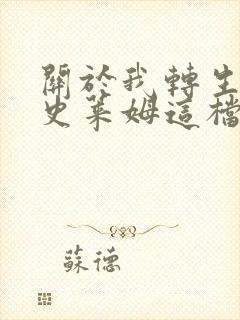 關於我轉生
史萊姆這檔
蘇德